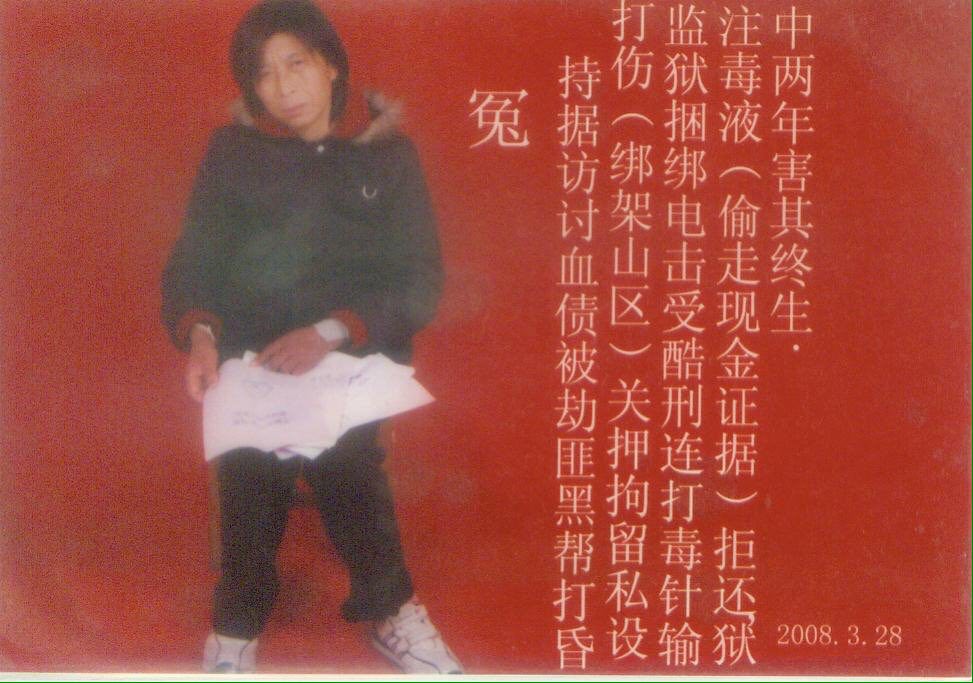 冤
持据访讨血债被劫匪黑帮打昏
打伤（绑架山区）关押拘留私设
监狱捆绑电击受酷刑连打毒针输
注毒液（偷走现金证据）拒还，狱
中两年害其终生.
2008.3.28